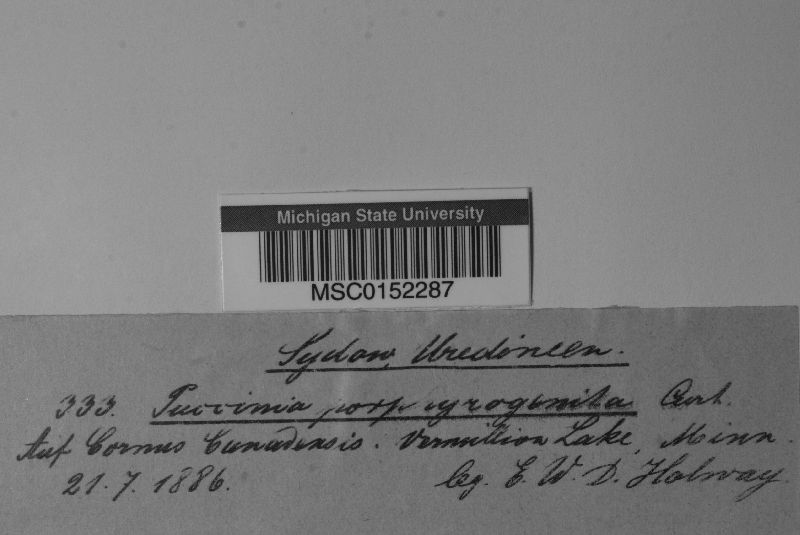 Michigan State University
MSC0152287
Sydow, Uredineen.
333. Puccinia porphyrogenita Curt.
Auf Cornus Canadensis. Vermillion Lake, Minn.
21.7.1886. leg. E. W. D. Holway